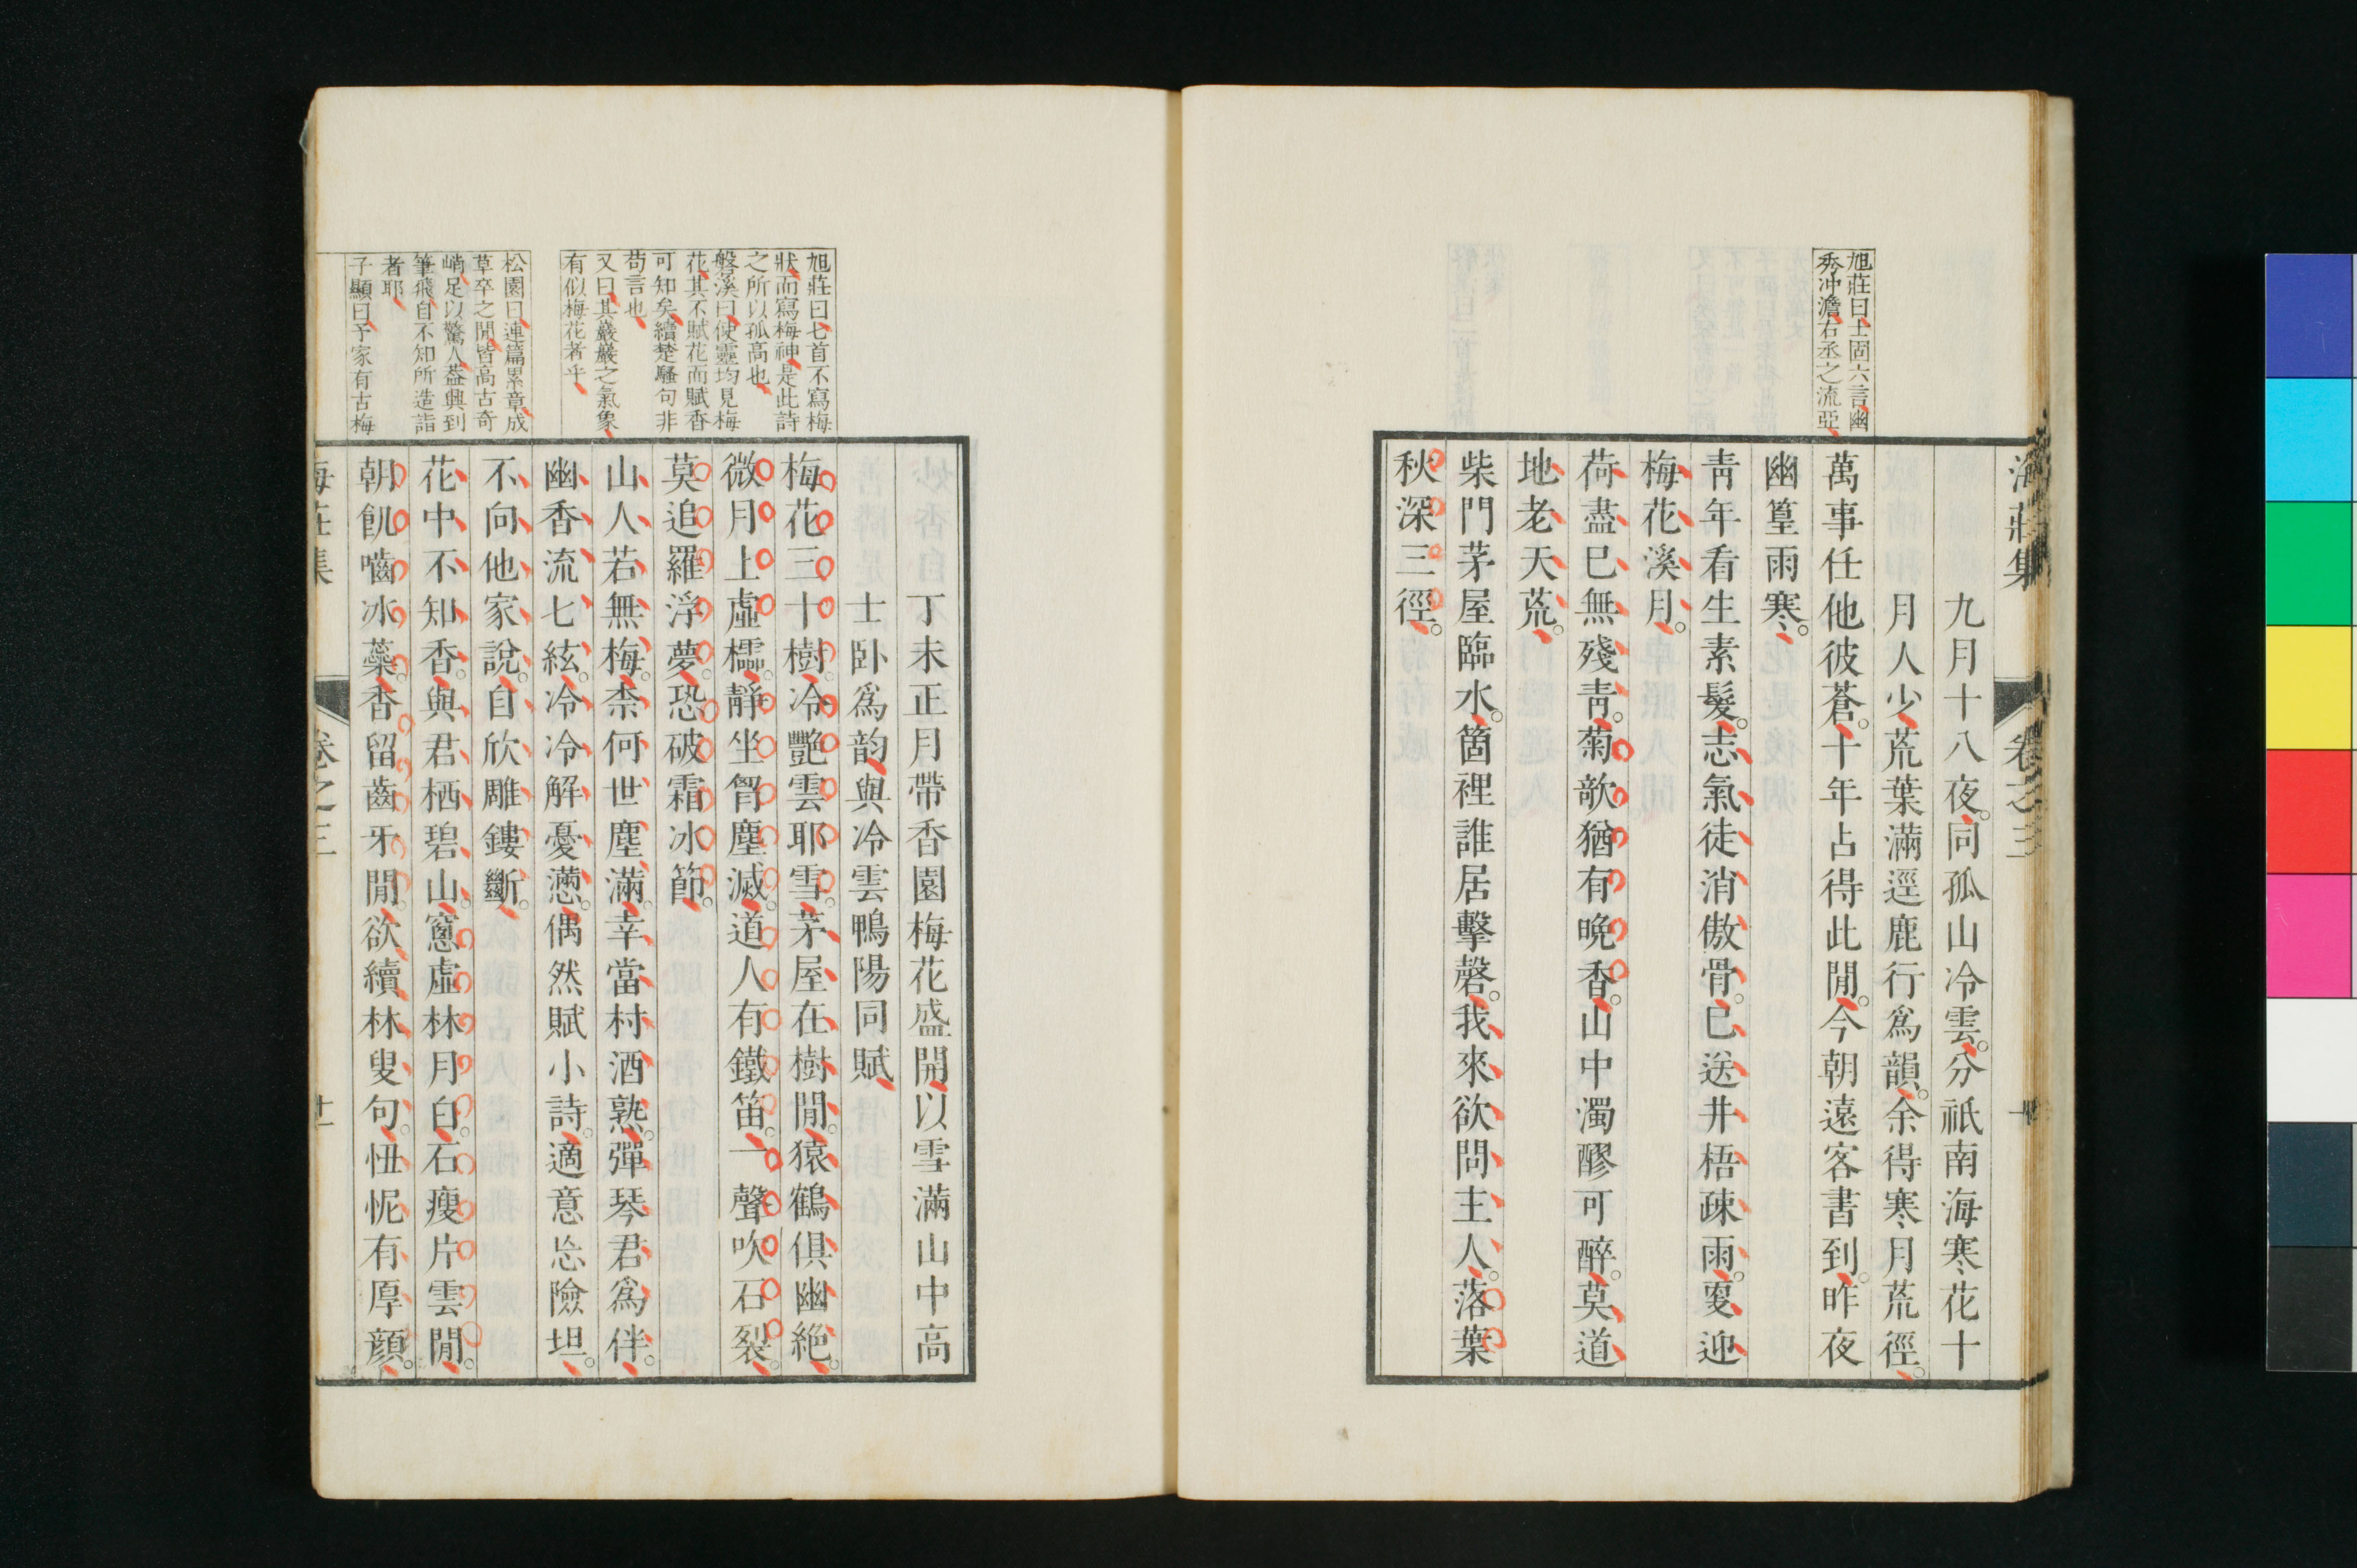 旭莊曰士固六言幽
秀冲澹右丞之流亞
莊集
卷之三
九月十八夜。同孤山冷雲。分祇南海寒花十
月人少荒葉滿逕鹿行爲韻。余得寒月荒徑。
萬事任他彼蒼。十年占得此閒。今朝遠客書到。昨夜
幽篁雨寒。
靑年看生素髮。志氣徒消傲骨。已送井梧疎雨。更迎
梅花溪月。
荷盡已無殘靑。菊欹猶有晩香。山中濁醪可醉。莫道
地老天荒。
柴門茅屋臨水。箇裡誰居擊磬。我來欲問主人。落葉
秋深三徑。
旭莊曰七首不寫梅
狀而寫梅神是此詩
之所以孤高也
磐溪曰使靈均見梅
花其不賦花而賦香
可知矣續楚騷句非
苟言也
又曰其巖巖之氣象
有似梅花者乎
松園曰連篇累章成
草卒之閒皆高古奇
峭足以驚人葢興到
筆飛自不知所造詣
者耶
子顯曰予家有古梅
丁未正月帶香園梅花盛開以雪滿山中高
士臥爲韵與冷雲鴨陽同賦
梅花三十樹。冷艷雲耶雪。茅屋在樹閒。猿鶴俱幽絕。
微月上虛櫺。靜坐胷塵滅。道人有鐵笛。一聲吹石裂。
莫追羅浮夢。恐破霜冰節。
山人若無梅。柰何世塵滿。幸當村酒熟。彈琴君爲伴。
幽香流七絃。冷冷解憂懣。偶然賦小詩。適意忘險坦。
不向他家說。自欣雕鏤斷。
花中不知香。與君栖碧山。窻虛林月白。石瘦片雲閒。
朝飢嚙冰蘂。香留齒牙閒。欲續林叟句。忸怩有厚顏。
卷之三
十一